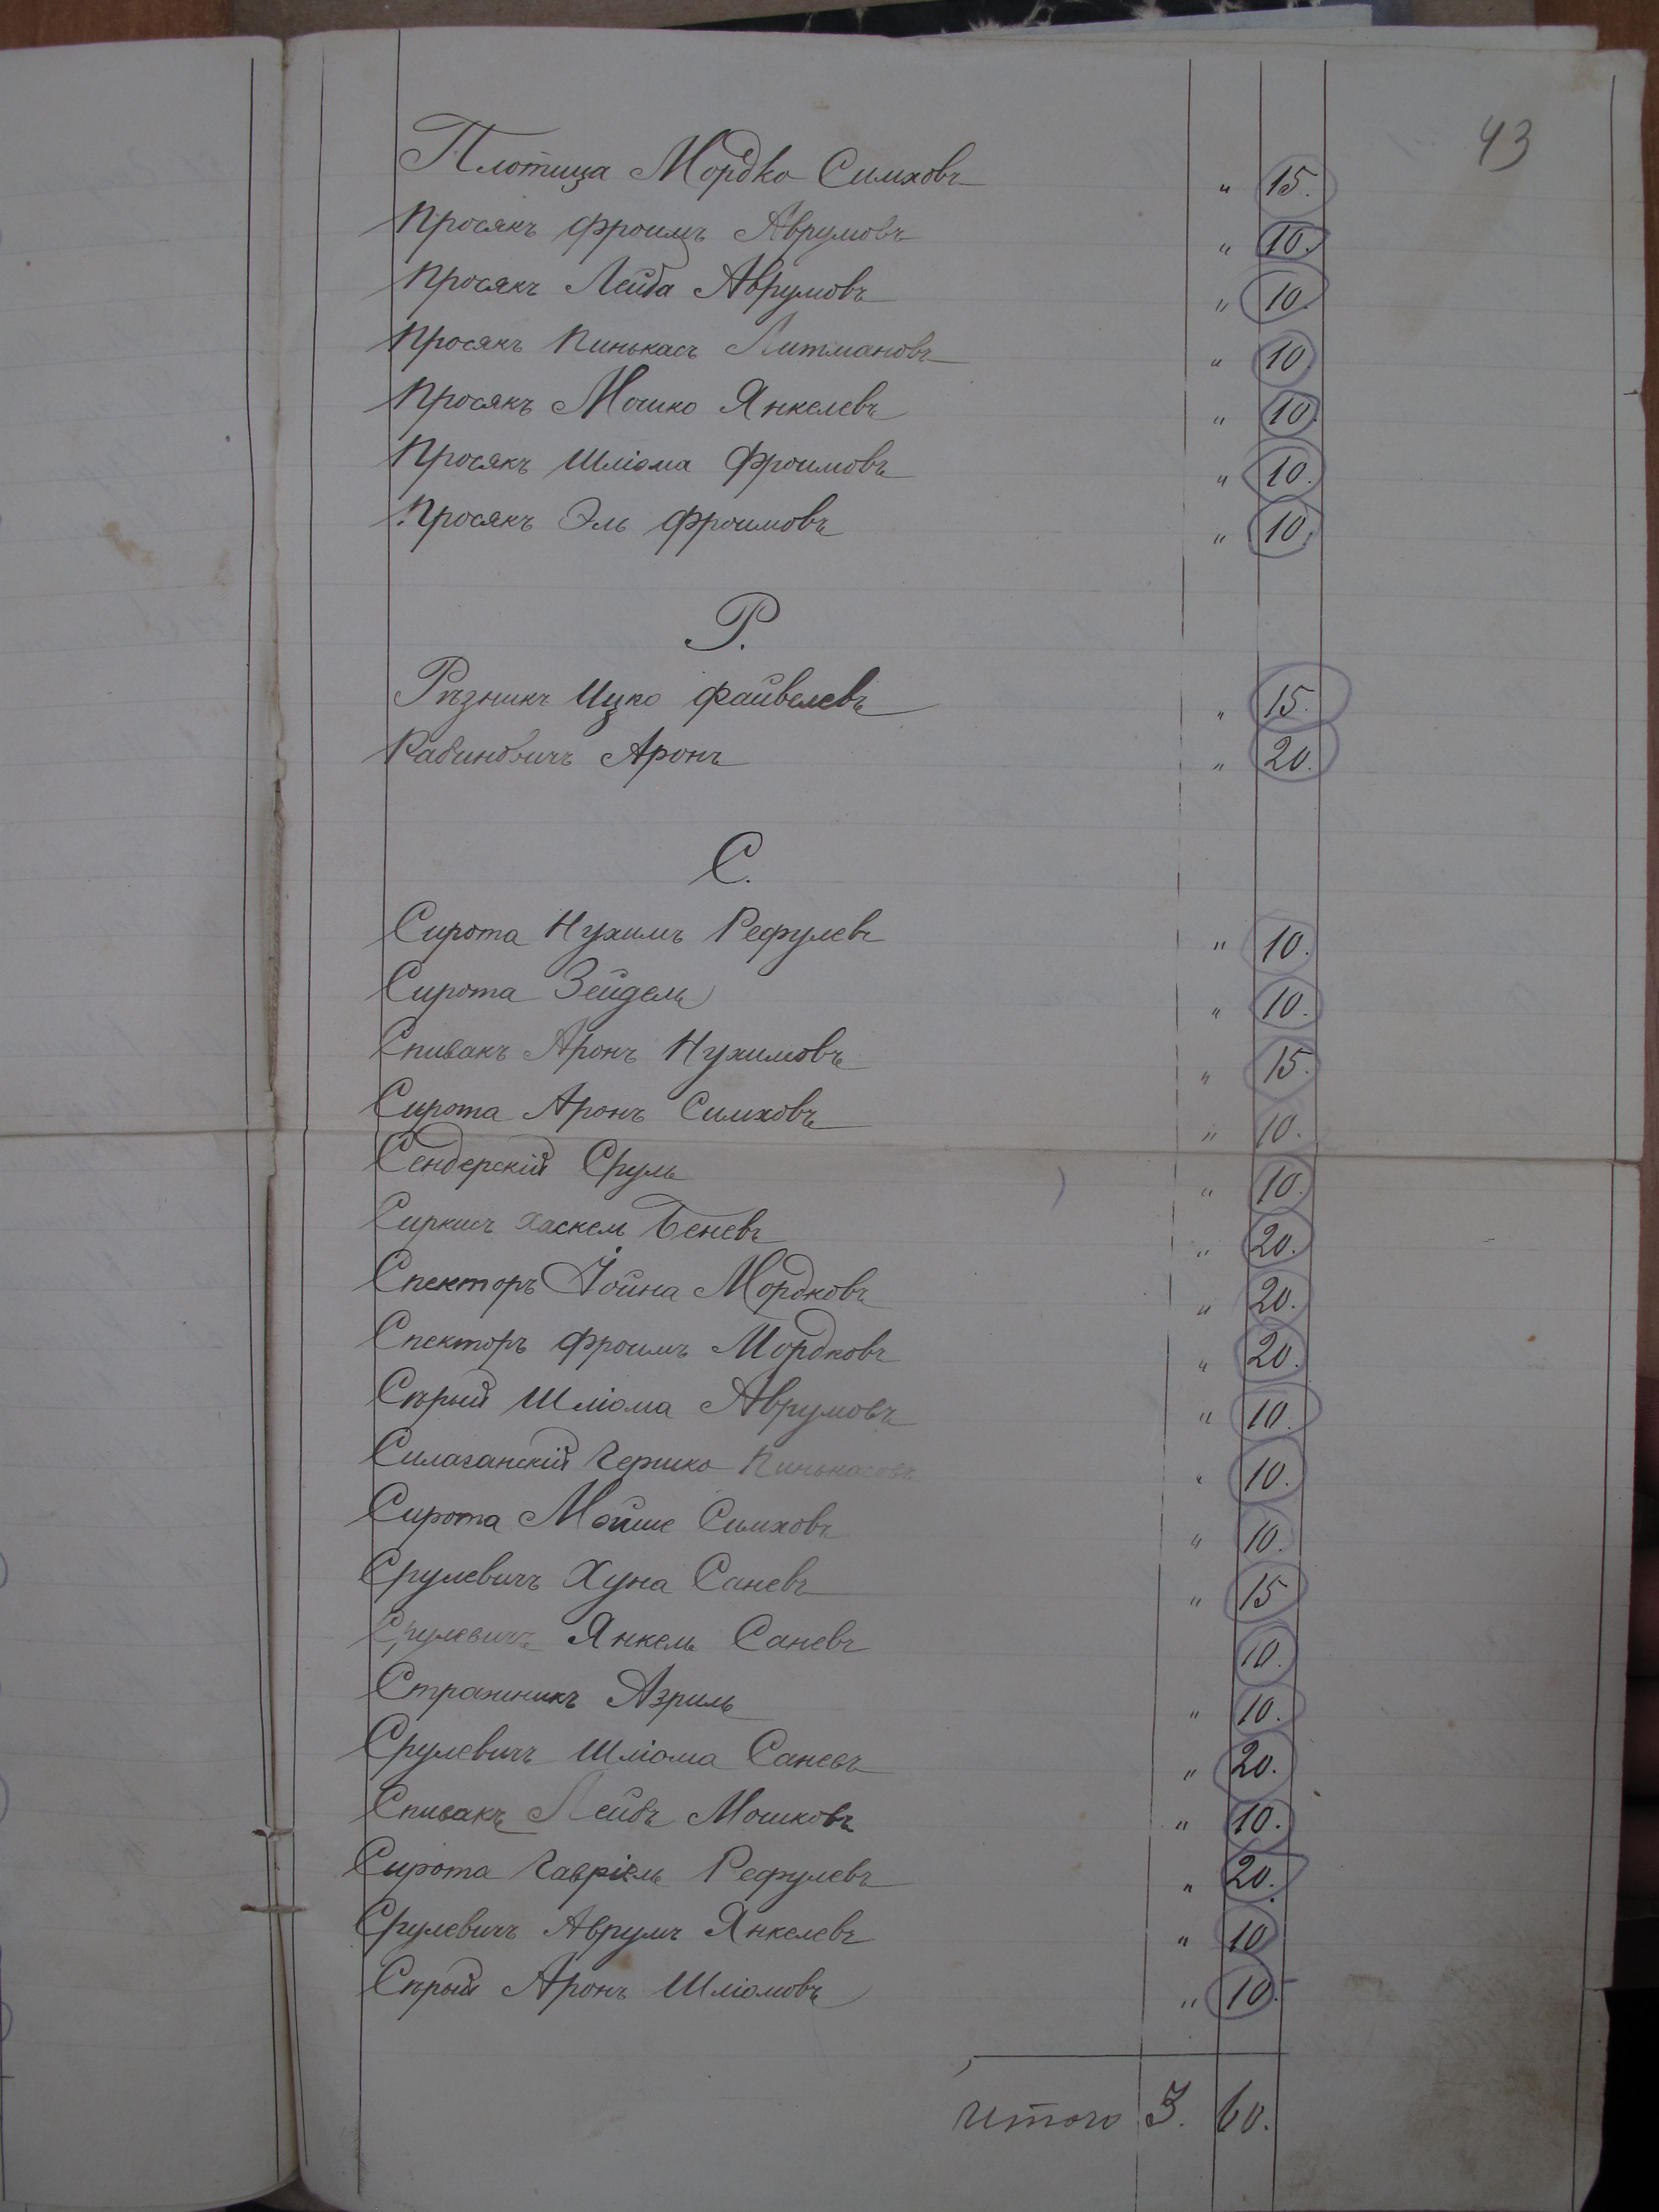 43
Плотица Мордко Симховъ " 15.
Просякъ Фроимъ Аврумовъ " 10.
Просякъ Лейба Аврумовъ " 10.
Просякъ Пинькасъ Литмановъ " 10.
Просякъ Мошко Янкелевъ " 10.
Просякъ Шліома Фроимовъ " 10.
Просякъ Эль Фроимовъ " 10.
Р.
Рѣзникъ Ицко Файвелевъ " 15.
Рабиновичъ Аронъ " 20.
С.
Сирота Нухимъ Рефулевъ " 10.
Сирота Зейдель " 10.
Спивакъ Аронъ Нухимовъ " 15.
Сирота Аронъ Симховъ " 10.
Сендерскій Сруль " 10.
Сиркисъ Хаскель Беневъ " 20.
Спекторъ Іойна Мордковъ " 20.
Спекторъ Фроимъ Мордковъ " 20.
Сѣрый Шліома Аврумовъ " 10.
Силаганскій Гершко Пинькасовъ " 10.
Сирота Мойше Симховъ " 10.
Срулевичъ Хуна Саневъ " 15
Срулевичъ Янкель Саневъ 10.
Стражникъ Азриль " 10.
Срулевичъ Шліома Саневъ " 20.
Спивакъ Лейбъ Мошковъ " 10.
Сирота Гавріель Рефулевъ " 20.
Срулевичъ Аврумъ Янкелевъ " 10
Сѣрый Аронъ Шліомовъ " 10.
Итого 3. 60.